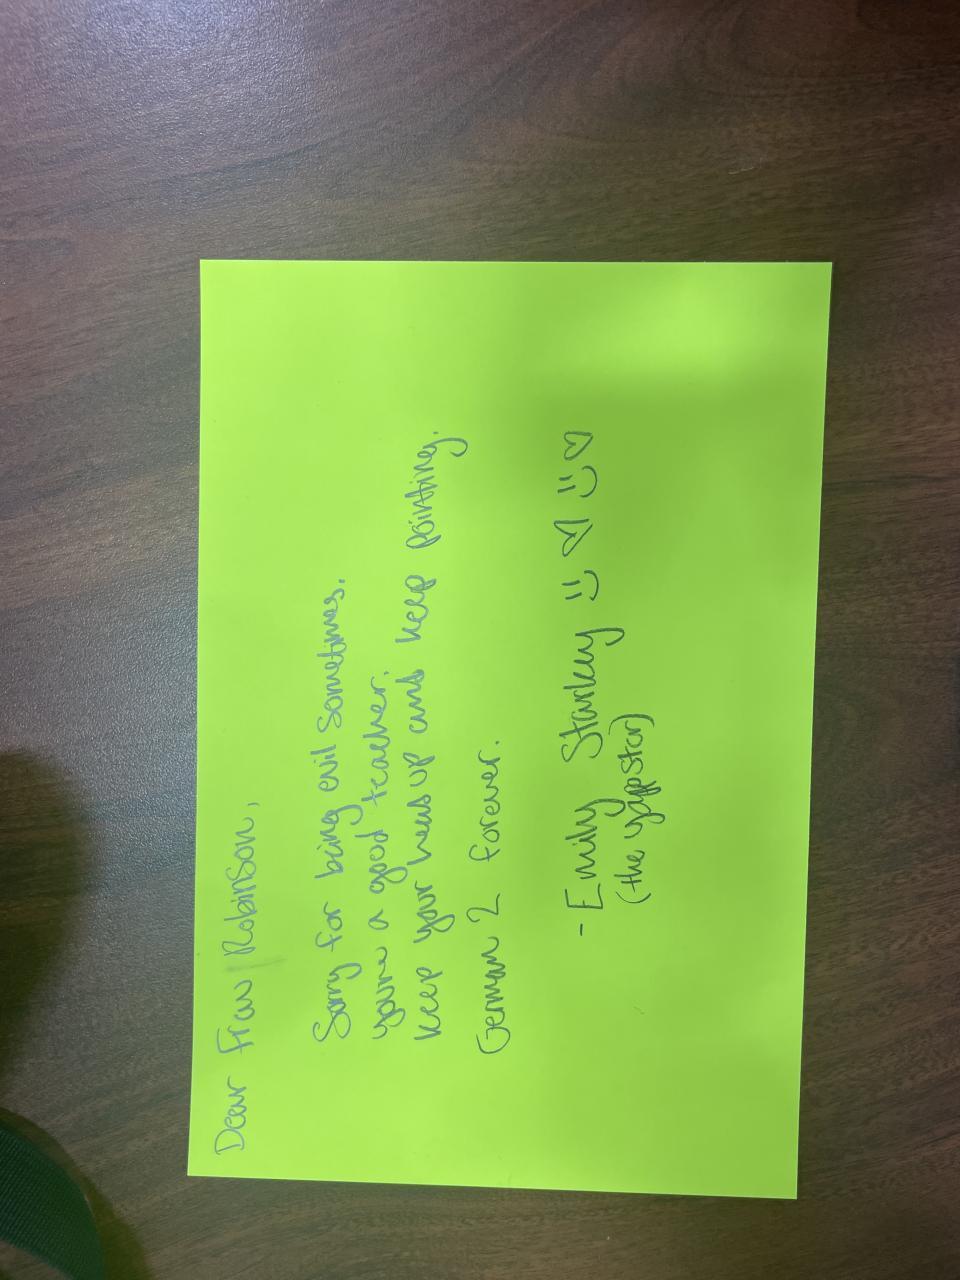 Dear Frau Robinson,
Sorry for being evil sometimes.
you're a good teacher.
keep your head up and keep painting.
German 2 forever.
- Emily Starkey :) ♡ :) ♡
(the yappstar)